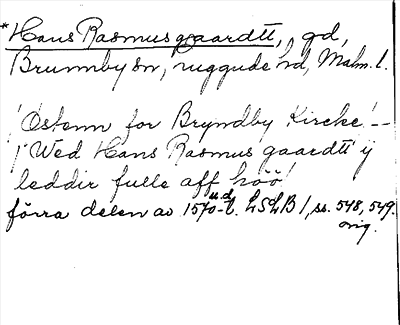 *Hans Rasmusgaardtt, gd,
Brunnby sn, Luggude hd, Malm. l.
! Østenn for Bryndby Kircke! —
! Wed Hans Rasmus gaardtt ij
leddir fulle aff höö!
förra delen av 1570-t. u.d. LSLB 1, ss. 548, 549.
orig.